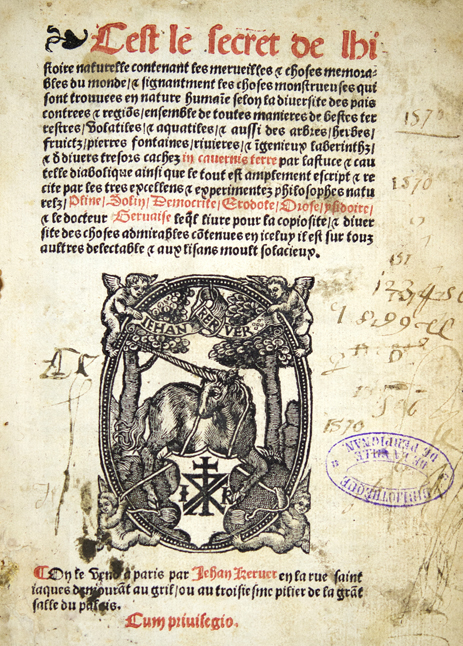 Cest le secret de lhi
stoire naturelle contenant les merueilles & choses memora-
bles du monde/& signantment les choses monstrueuses qui
sont trouuees en nature humaĩe selon la diuersite des pais
contrees & regiõs/ensemble de toutes manieres de bestes ter
restres/volatiles & aquatiles/& aussi des arbres/herbes/
fruictz/pierres fontaines/riuieres/& ĩgenieux laberinthz/
& d diuers tresors cachez in cauernis terre par lastuce & cau
telle diabolique ainsi que le tout est amplement escript & re
cite par les tres excellens & experimentez philosophes natu
relz/Pline/Solin/Democrite/Erodote/Orose/ysidoire/
& le docteur Geruaise leq̃l liure pour la copiosite/& diuer
site des choses admirables cõtenues en iceluy il est sur touz
aultres delectable & aux lisans moult solacieux.
IEHAN KERVER
I K
On le vend a paris par Jehan Keruer en la rue saint
iaques demourãt au gril/ou au troisiesme pilier de la grãt
salle du palais.
Cum priuilegio.
1570
1570
1570
BIBLIOTHEQUE
DE LA VILLE
DE PERPIGNAN